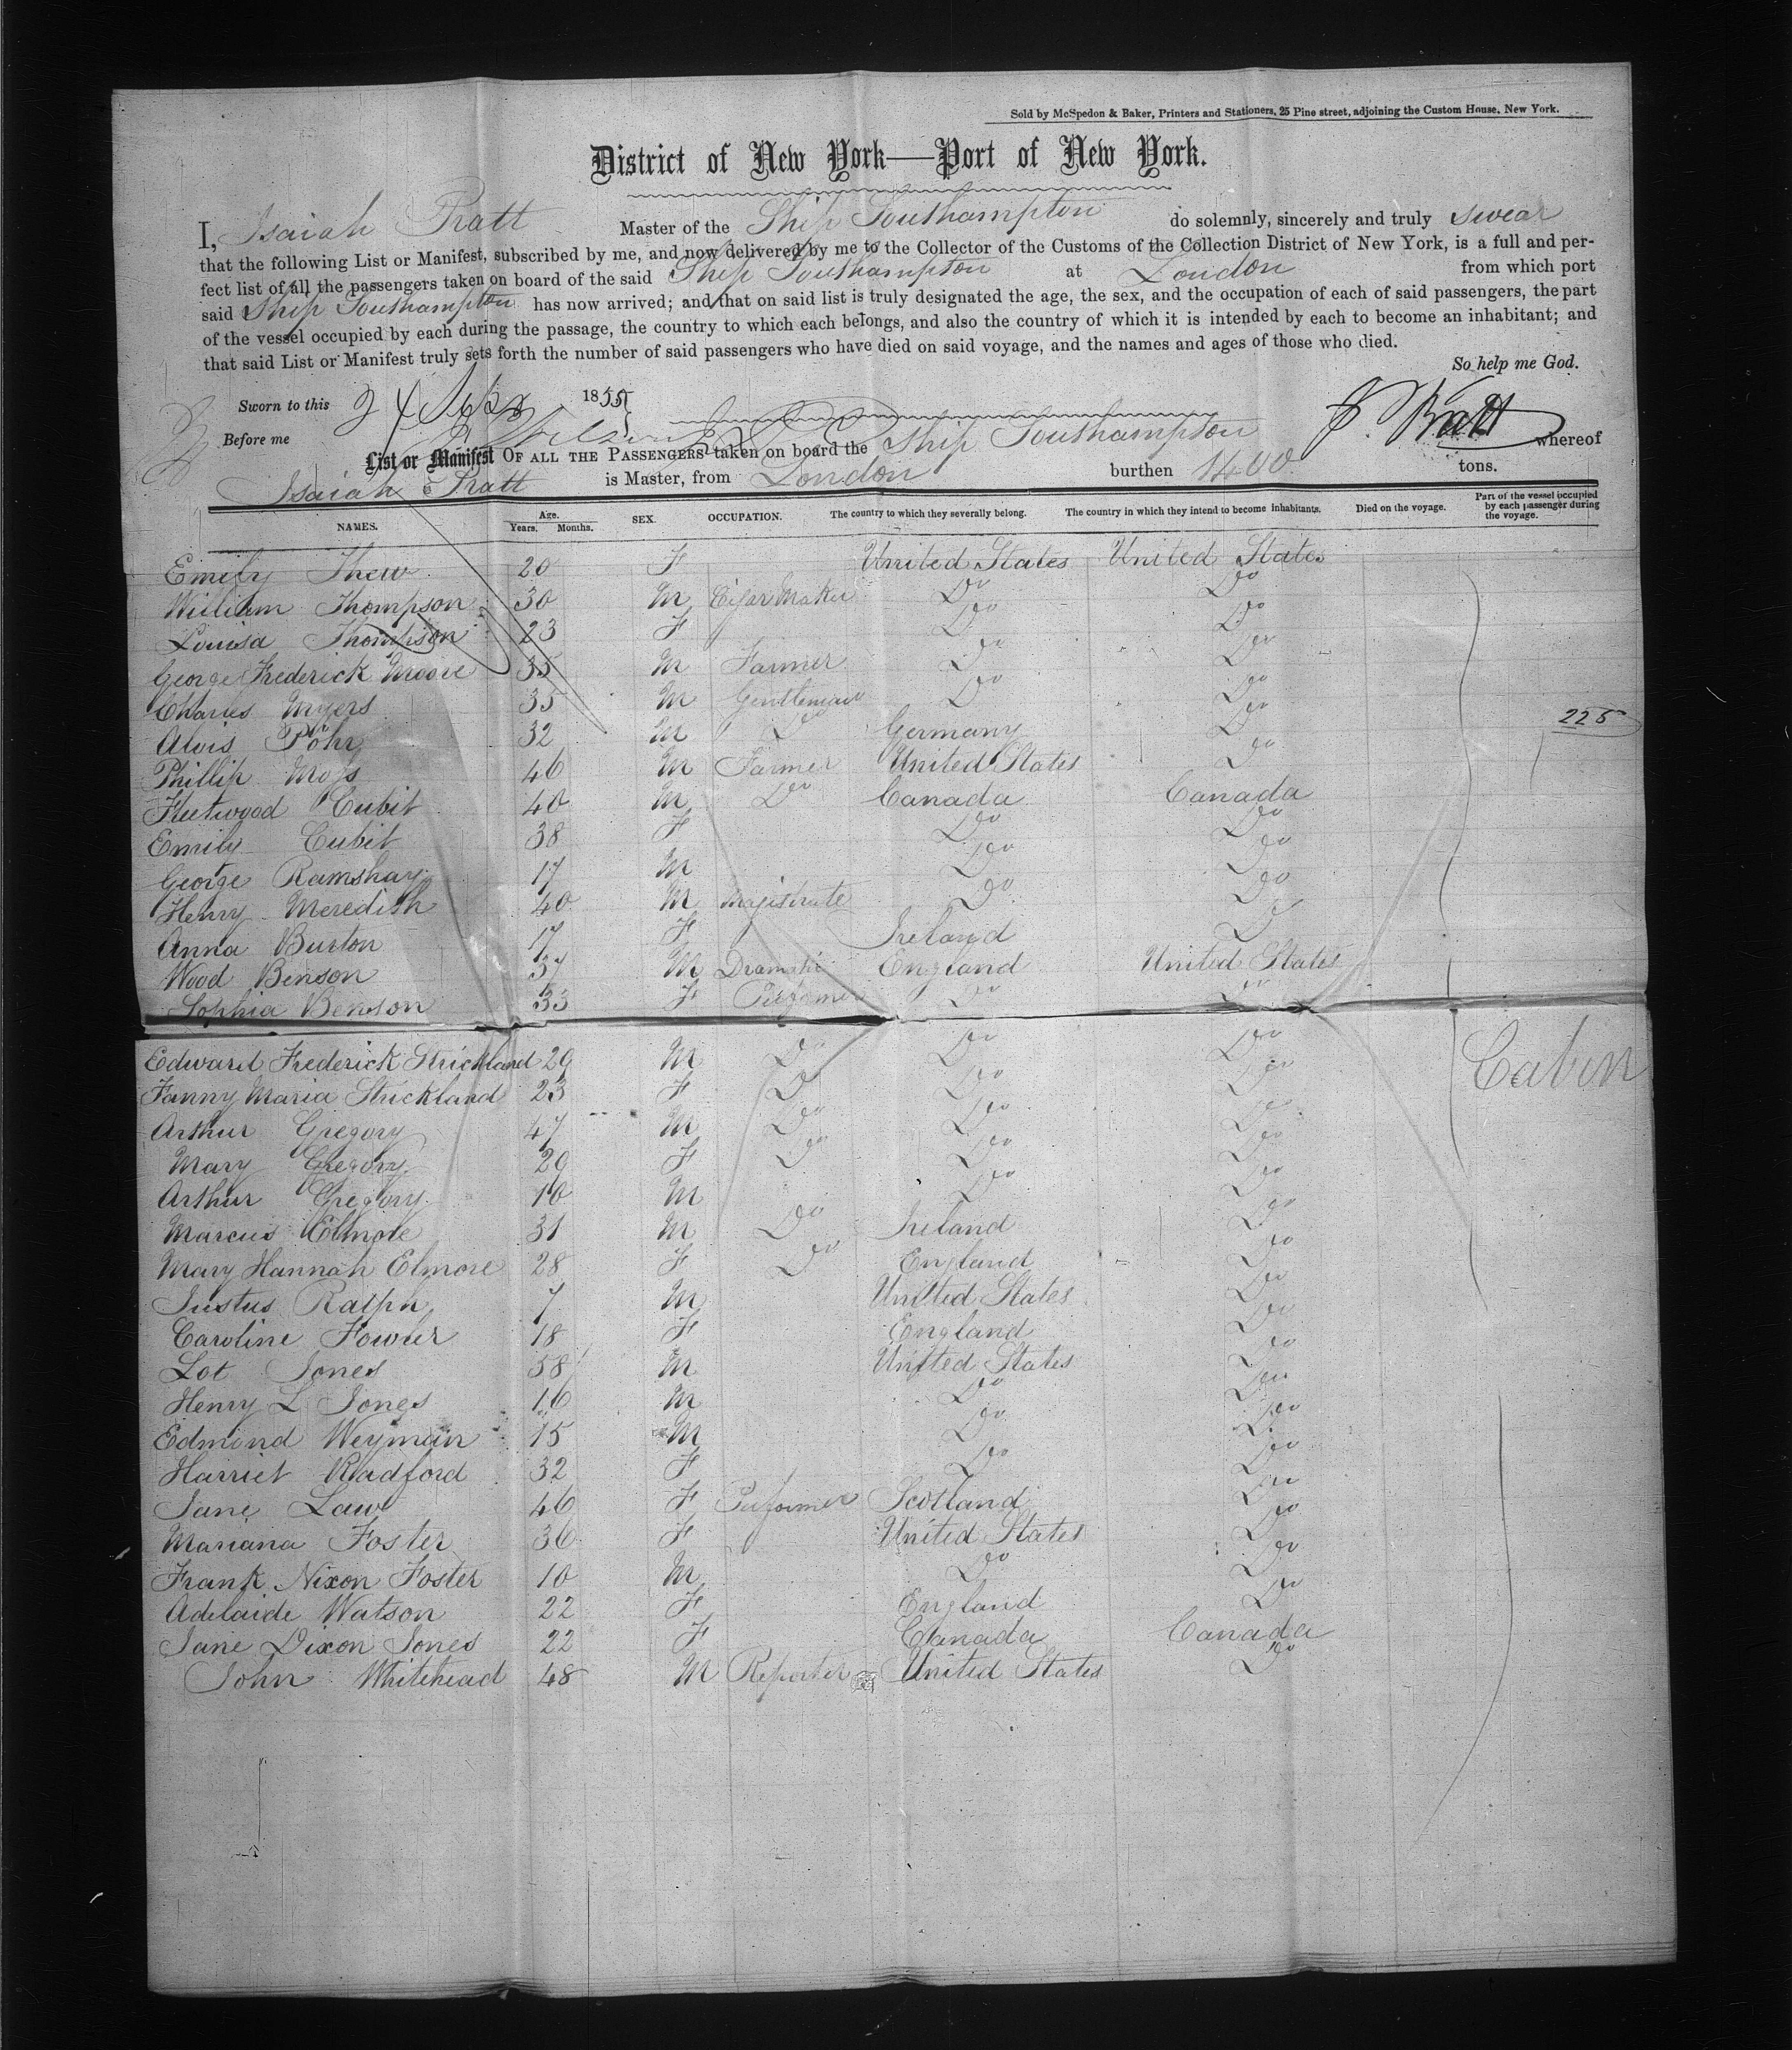 Sold by McSpedon & Baker, Printers and Stationers, 25 Pine street, adjoining the Custom House, New York.
District of New York—Port of New York.
I, Isaiah Pratt Master of the Ship Southampton do solemnly, sincerely and truly swear
that the following List or Manifest, subscribed by me, and now delivered by me to the Collector of the Customs of the Collection District of New York, is a full and per-
fect list of all the passengers taken on board of the said Ship Southampton at London from which port
said Ship Southampton has now arrived; and that on said list is truly designated the age, the sex, and the occupation of each of said passengers, the part
of the vessel occupied by each during the passage, the country to which each belongs, and also the country of which it is intended by each to become an inhabitant; and
that said List or Manifest truly sets forth the number of said passengers who have died on said voyage, and the names and ages of those who died.
So help me God.
Sworn to this 24 1855
Before me I. Pratt
List or Manifest OF ALL THE PASSENGERS taken on board the Ship Southampton whereof
Isaiah Pratt is Master, from London burthen 1400 tons.
NAMES. Age. Years. Months. SEX. OCCUPATION. The country to which they severally belong. The country in which they intend to become inhabitants. Died on the voyage. Part of the vessel occupied by each passenger during the voyage.
Emily Thew 20 F United States United States
William Thompson 30 M Cigar Maker Do Do
Louisa Thompson 23 F Do Do
George Frederick Moore 35 M Farmer Do Do
Charles Myers 35 M Gentleman Do Do
Alois Pöhr 32 M Do Germany Do 225
Phillip Moss 46 M Farmer United States Do
Fleetwood Cubit 40 M Do Canada Canada
Emily Cubit 38 F Do Do
George Ramshay 17 M Do Do
Henry Meredith 40 M Magistrate Do Do
Anna Burton 17 F Ireland D
Wood Benson 37 M Dramatic England United States
Sophia Benson 33 F Performer Do Do
Edward Frederick Strickland 29 M Do Do Do Cabin
Fanny Maria Strickland 23 F D Do Do
Arthur Gregory 47 M Do Do Do
Mary Gregory 29 F Do Do Do
Arthur Gregory 10 M Do Do
Marcus Elmore 31 M Do Ireland Do
Mary Hannah Elmore 28 F Do England Do
Justus Ralph 7 M United States Do
Caroline Fowler 18 F England Do
Lot Jones 58 M United States Do
Henry L Jones 16 M Do Do
Edmond Weyman 15 M Do Do
Harriet Radford 32 F Do Do
Jane Law 46 F Performer Scotland Do
Mariana Foster 36 F United States Do
Frank Nixon Foster 10 M Do Do
Adelaide Watson 22 F England Do
Jane Dixon Jones 22 F Canada Canada
John Whitehead 48 M Reporter United States Do